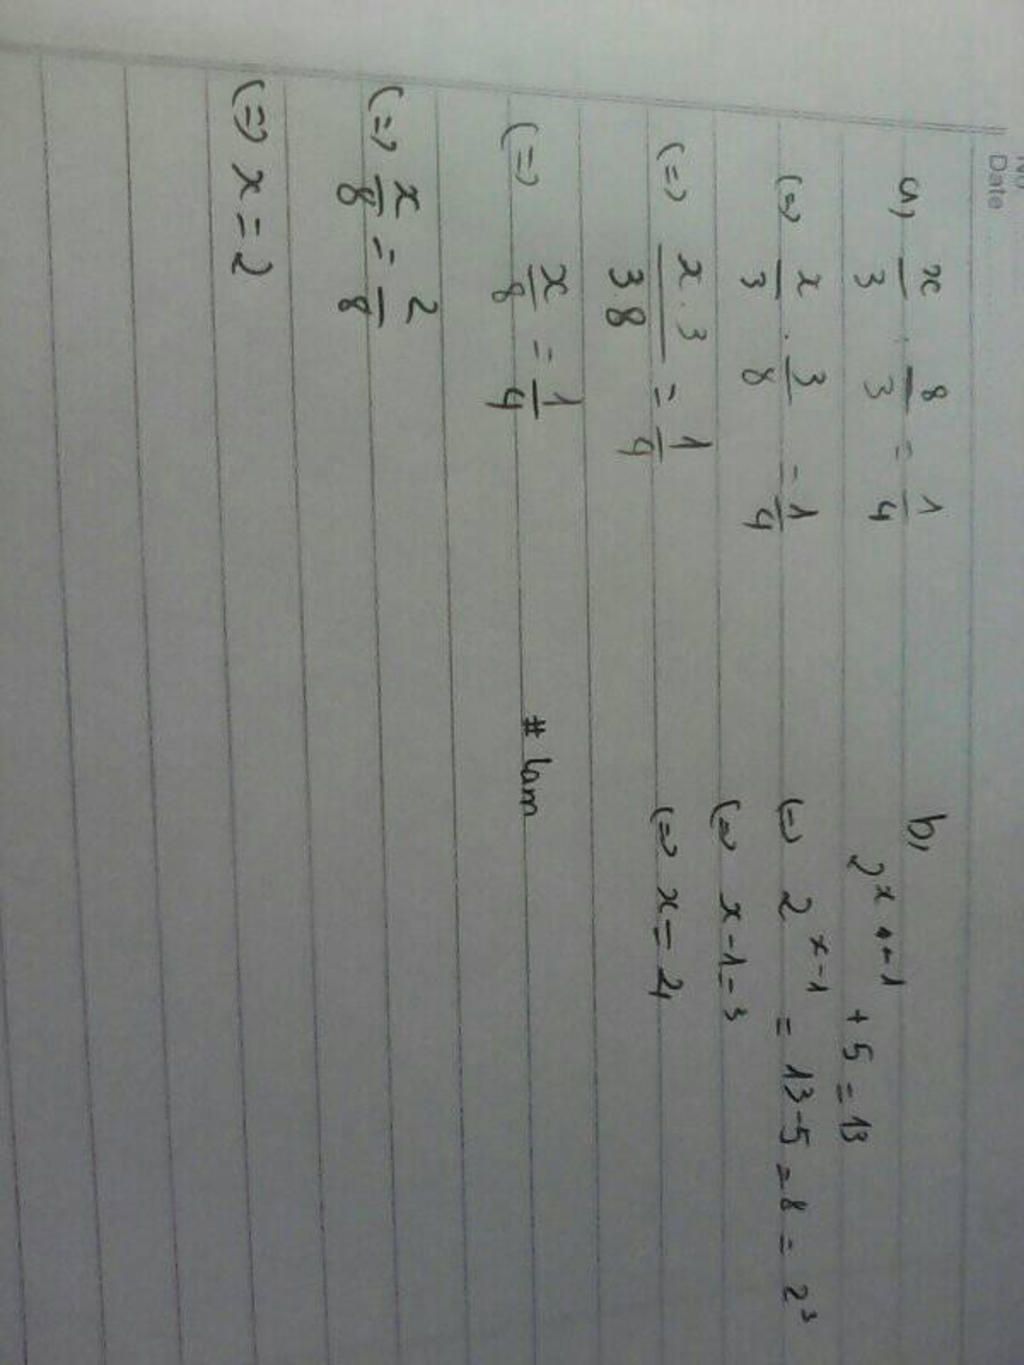 No
Date
a, x/3 . 8/3 = 1/4
(=) x/3 . 3/8 = 1/4
(=) x.3/38 = 1/4
(=) x/8 = 1/4
(=) x/8 = 2/8
(=) x = 2
b,
2^x-1 + 5 = 13
(=) 2^x-1 = 13-5 = 8 = 2^3
(=) x-1=3
(=) x = 4
# lam